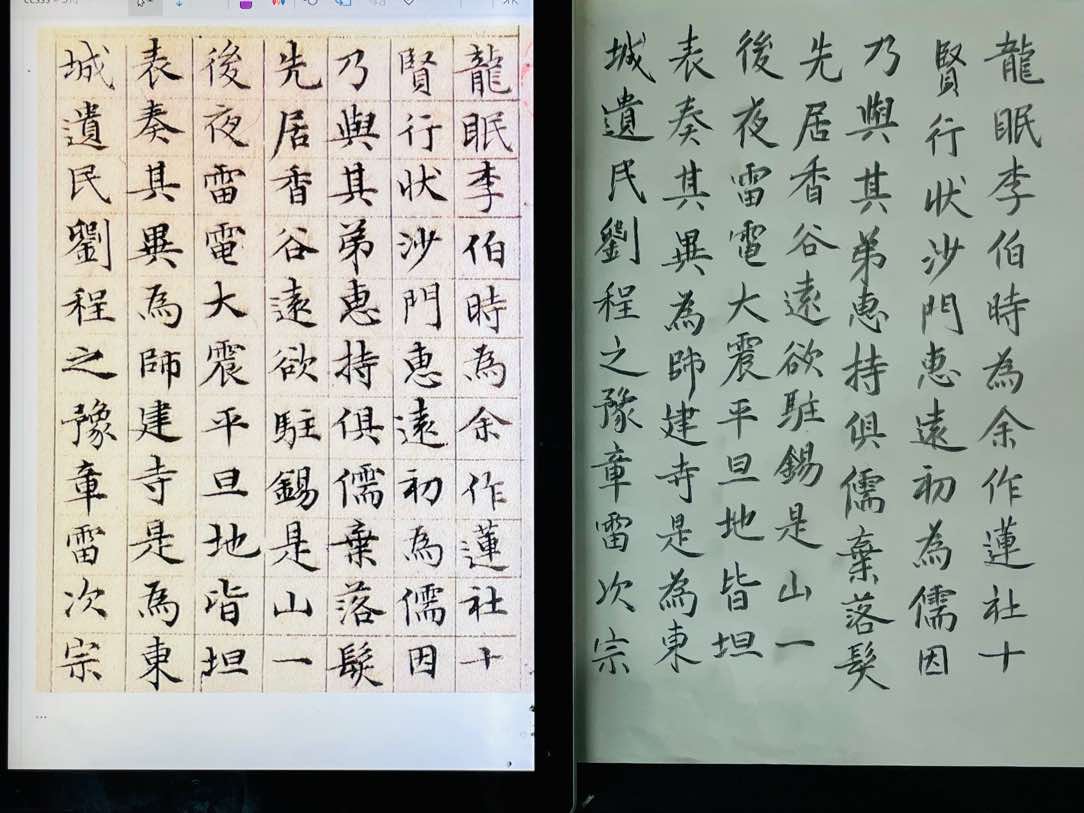 龍眠李伯時為余作蓮社十
賢行狀沙門惠遠初為儒因
乃與其弟惠持俱儒棄落髮
先居香谷遠欲駐錫是山一
後夜雷電大震平旦地皆坦
表奏其異為師建寺是為東
城遺民劉程之豫章雷次宗
龍眠李伯時為余作蓮社十
賢行狀沙門惠遠初為儒因
乃與其弟惠持俱儒棄落髮
先居香谷遠欲駐錫是山一
後夜雷電大震平旦地皆坦
表奏其異為師建寺是為東
城遺民劉程之豫章雷次宗